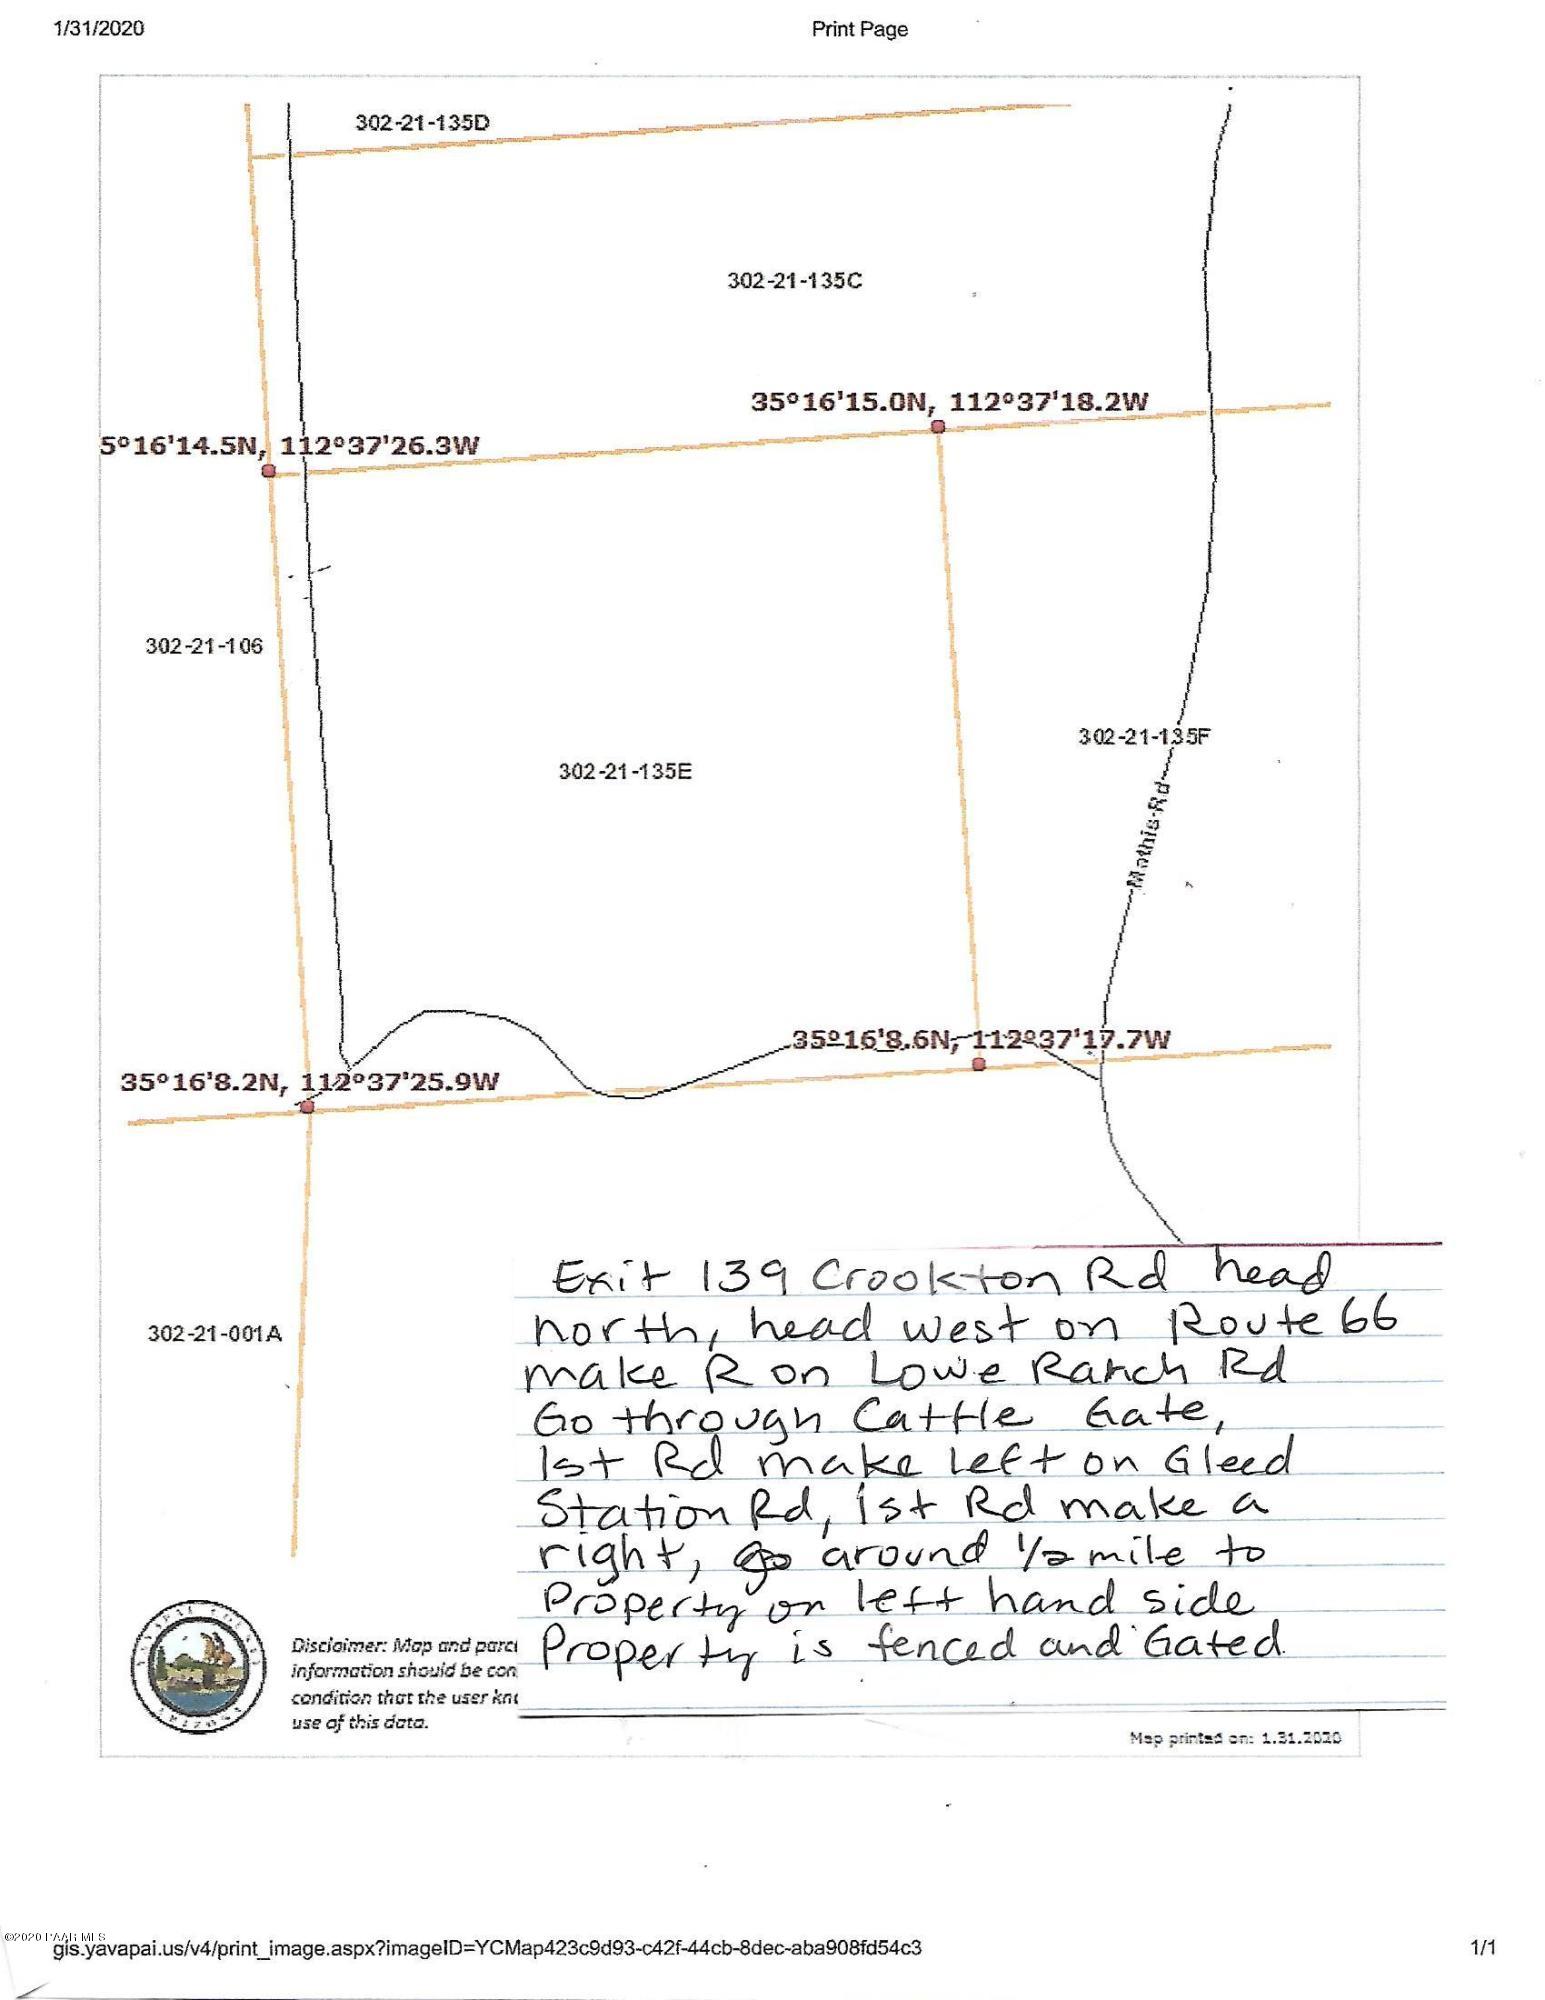 1/31/2020
Print Page
302-21-135D
302-21-135C
35°16'15.0N, 112°37'18.2W
5°16'14.5N, 112°37'26.3W
302-21-106
302-21-135F
302-21-135E
Mathis Rd
35°16'8.6N, 112°37'17.7W
35°16'8.2N, 112°37'25.9W
302-21-001A
Exit 139 Crookton Rd head
north, head west on Route 66
make R on Lowe Ranch Rd
Go through Cattle Gate,
1st Rd make left on Gleed
Station Rd, 1st Rd make a
right, go around 1/2 mile to
Property on left hand side
Property is fenced and Gated.
Disclaimer: Map and parce
information should be con
condition that the user kno
use of this data.
Map printed on: 1.31.2020
©2020 PAAR MLS
gis.yavapai.us/v4/print_image.aspx?imageID=YCMap423c9d93-c42f-44cb-8dec-aba908fd54c3
1/1